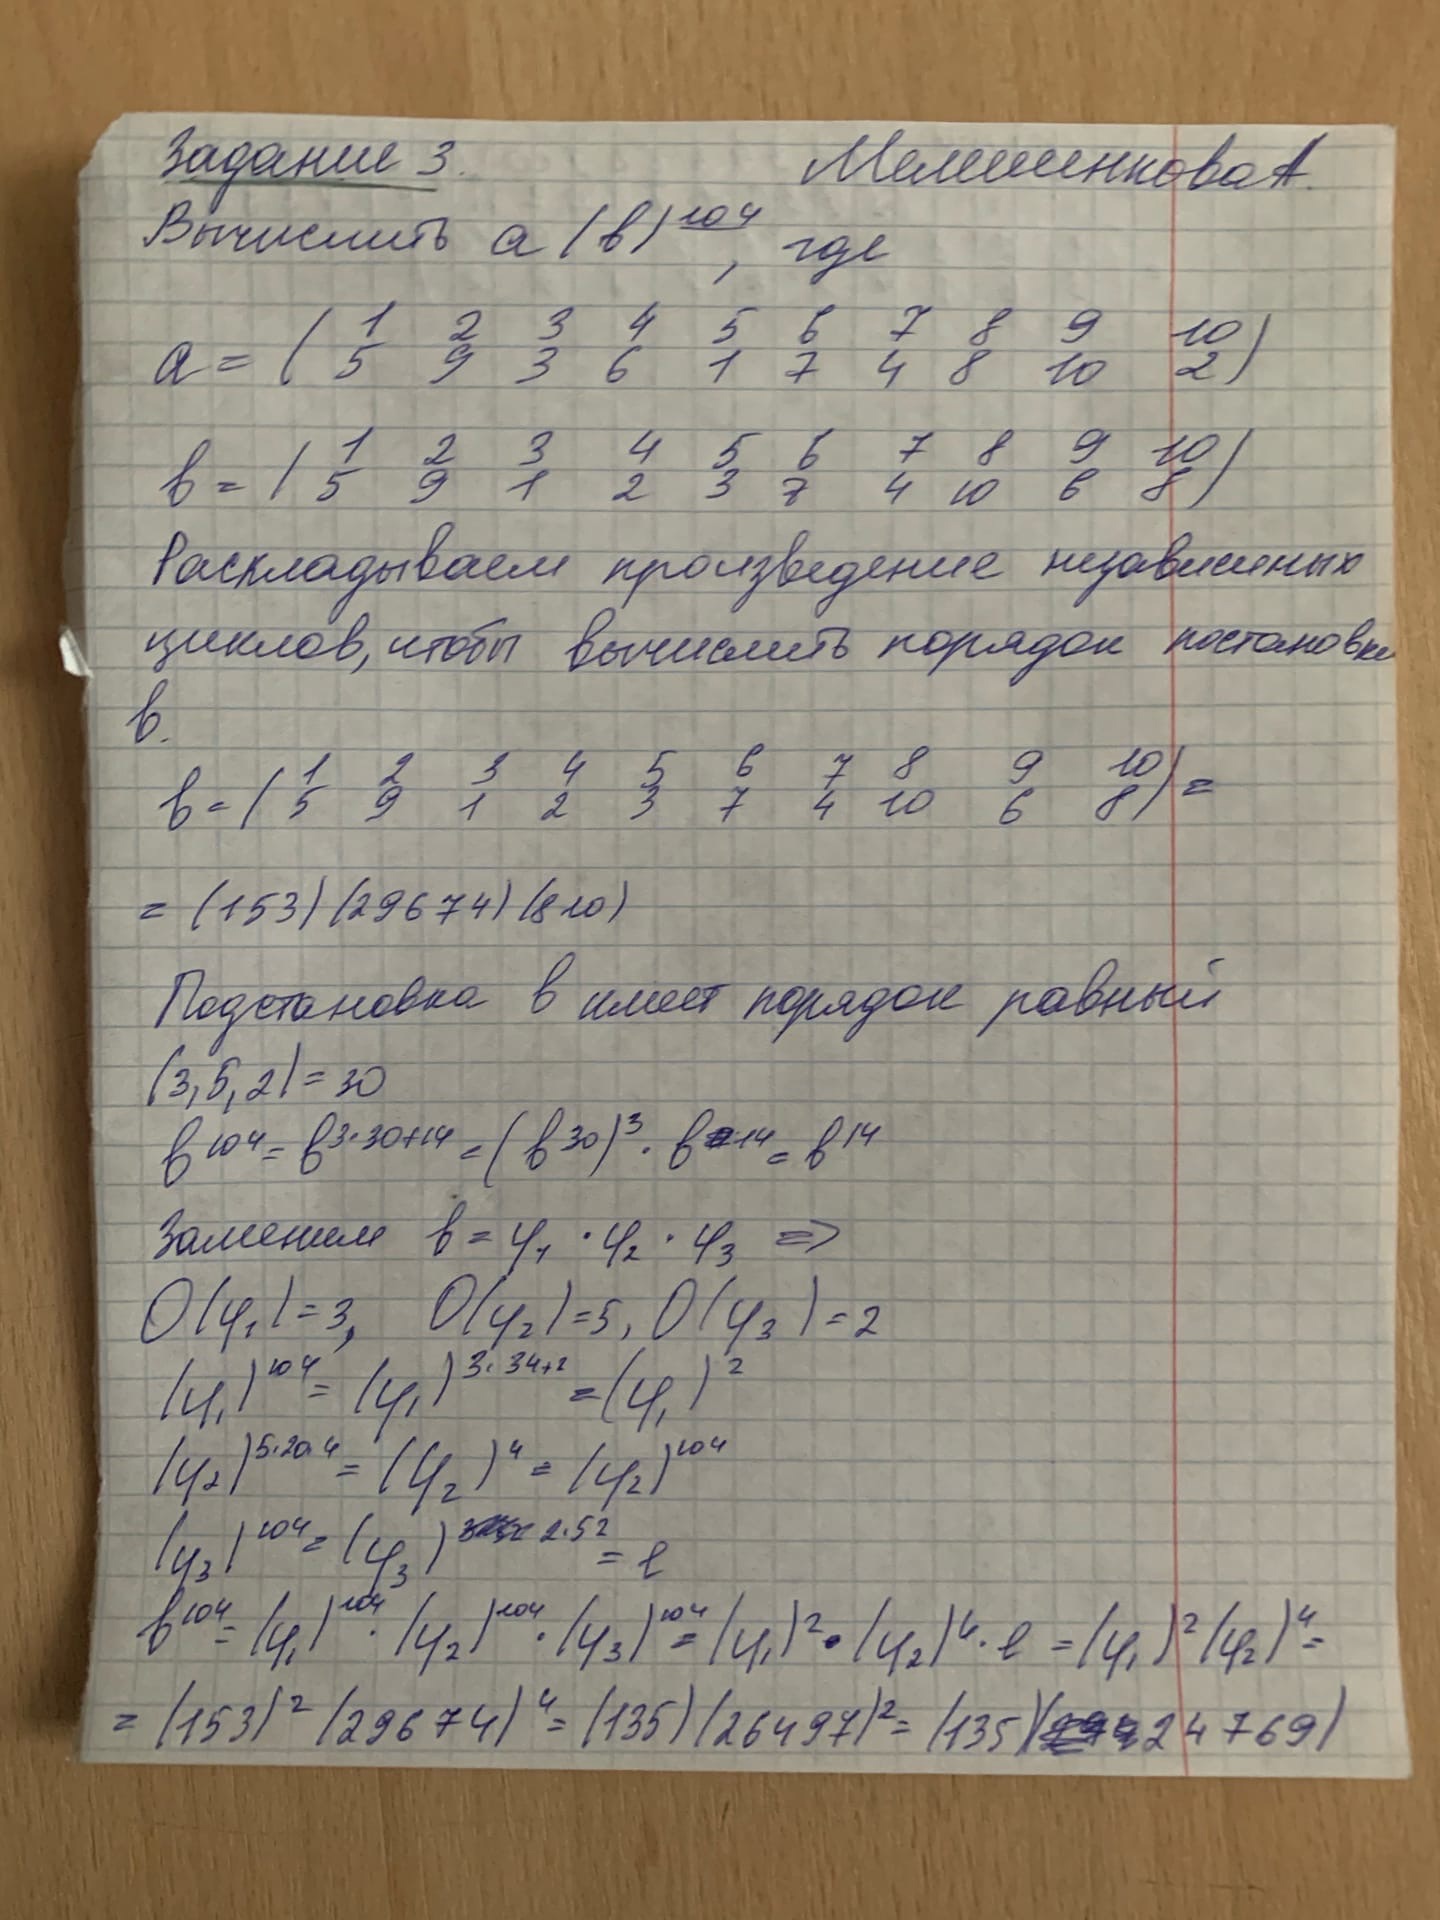 Задание 3. Мелешенкова А.
Вычислить a (b)^104, где
a = ( 1 2 3 4 5 6 7 8 9 10
5 9 3 6 1 7 4 8 10 2 )
b = ( 1 2 3 4 5 6 7 8 9 10
5 9 1 2 3 7 4 10 6 8 )
Раскладываем произведение независимых
циклов, чтобы вычислить порядок постановки
b.
b = ( 1 2 3 4 5 6 7 8 9 10
5 9 1 2 3 7 4 10 6 8 ) =
= (153) (29674) (8 10)
Подстановка b имеет порядок равный
(3,5,2) = 30
b^104 = b^3·30+14 = (b^30)^3 · b^14 = b^14
Заменим b = φ1 · φ2 · φ3 =>
O(φ1) = 3, O(φ2) = 5, O(φ3) = 2
(φ1)^104 = (φ1)^3·34+2 = (φ1)^2
(φ2)^5·20·4 = (φ2)^4 = (φ2)^104
(φ3)^104 = (φ3)^2·52 = e
b^104 = (φ1)^104 · (φ2)^104 · (φ3)^104 = (φ1)^2 · (φ2)^4 · e = (φ1)^2 (φ2)^4 =
= (153)^2 (29674)^4 = (135) (26497)^2 = (135) (24769)